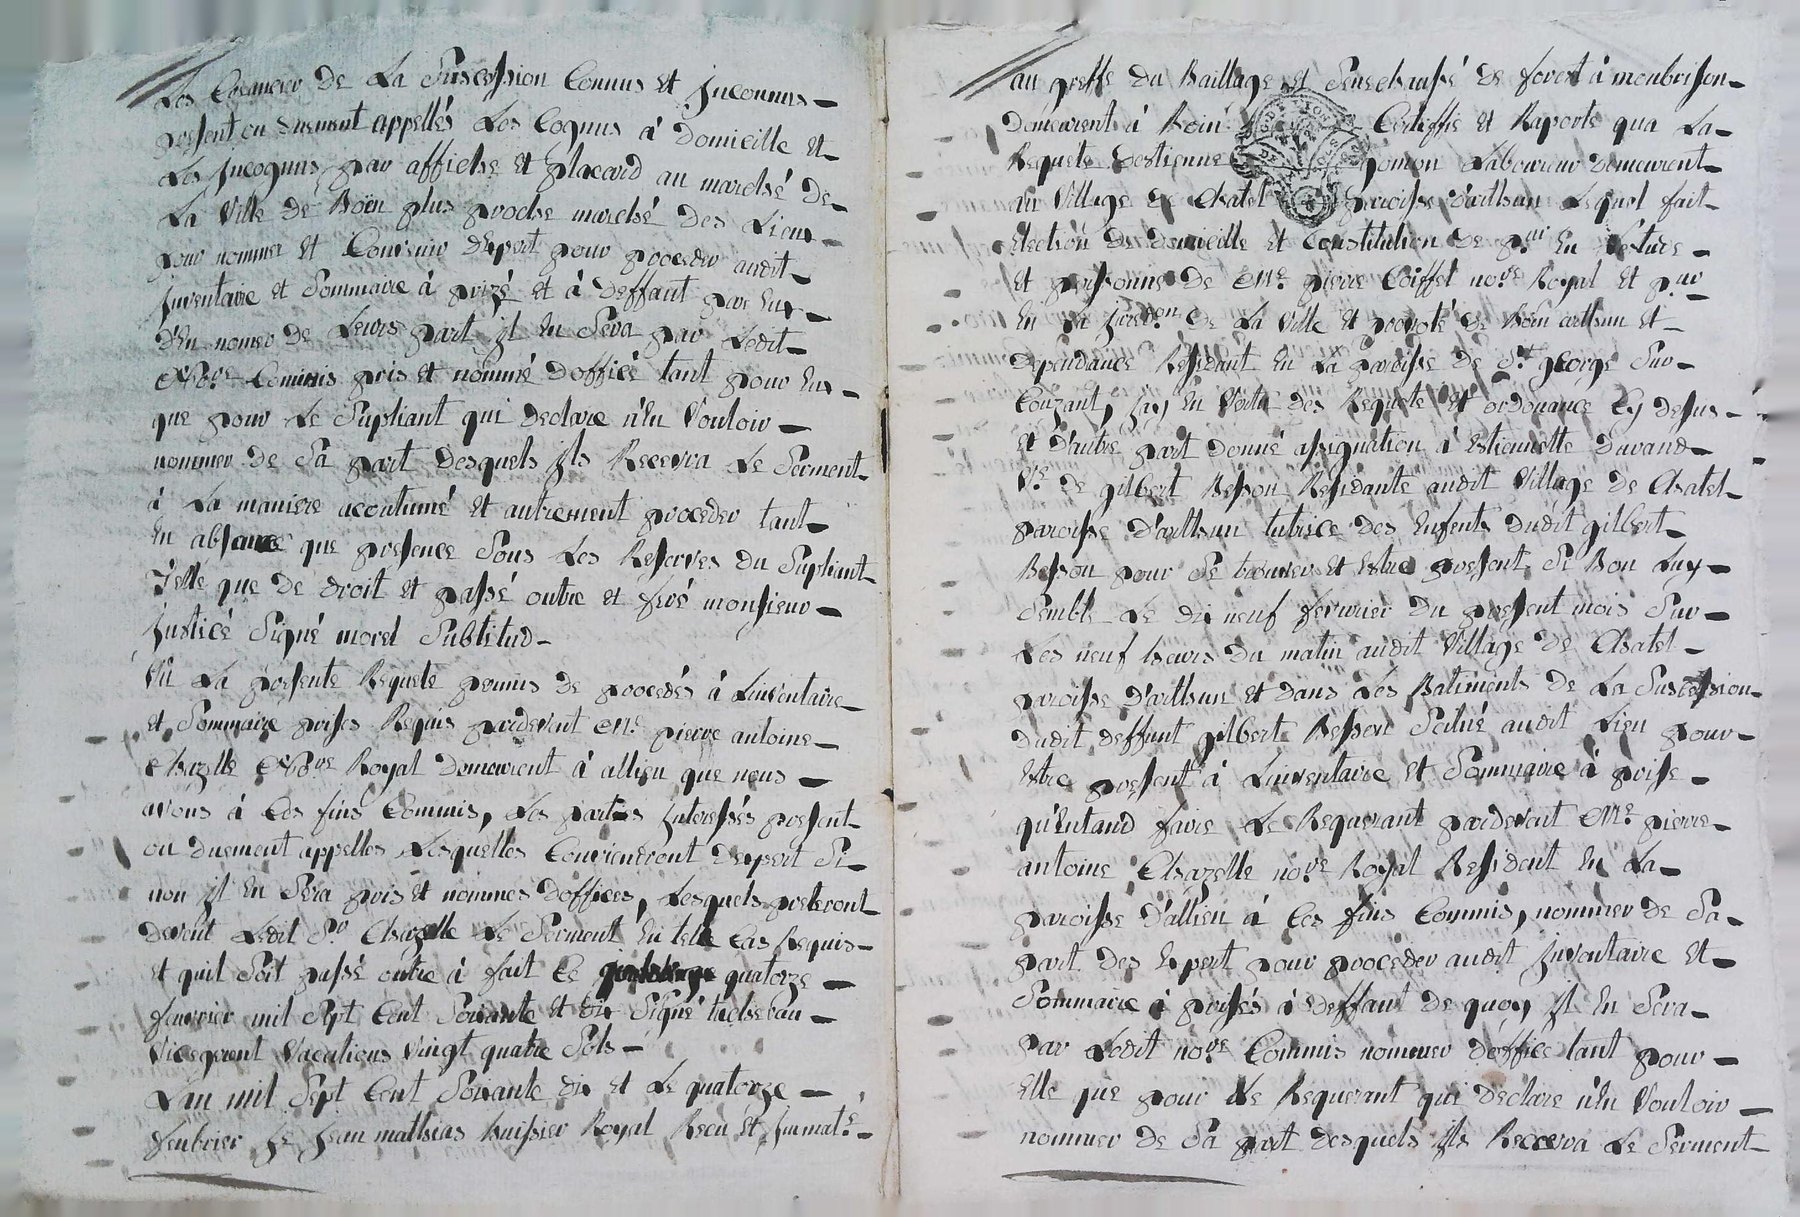 Les Creancier de La Sucession Connus et Jnconnus
present ou duement appellés Les Cognus à Domicille et
Les Jncognus par affiche et placard au marché de
La Ville de Böën plus proche marché des Lieux
pour nommer et Convenir dExpert pour proceder audit
Jnventaire et Sommaire à prizé et à deffaut par Eux
d'En nomer de Leurs part Jl En Sera par Ledit
Nore Commis pris et nommé doffice tant pour Eux
que pour Le Supliant qui declare n'En Vouloir
nommer de Sa part desquels Jls Recevra Le Serment
à La maniere acoutumé et autrement proceder tant
En absance que presence Sous Les Reserves du Supliant
telle que de droit et passé outre et feré monsieur
Justice Signé morel Substitud
Vu La presente Requete permis de procedés à Linventaire
et Sommaire prises Requis pardevent Me. pierre antoine
Chazelle Nore Royal Demeurent à allieu que nous
avons à Ces fins Commis, Les parties Jnteressés present
ou duement appelles Lesquelles Conviendront dexpert Si
non Jl En Sera pris et nommes doffices, Lesquels preteront
devent Ledit Sr Chazelle Le Serment En telle Cas Requis
et quil Soit passé outre à fait Ce quatorze
fevrier mil Sept Cent Soixante et dix Signé
Vicegerent Vacations Vingt quatre Sols
Lan mil Sept Cent Soixante dix et Le quatorze
feubrier Je Jean mathias huissier Royal Recu et Jmmatlé
au greffe du Baillage et Senechaussé de forest à monbrison
demeurent à Boin Certiffie et Raporte qua La
Requete destienne ponon Laboureur demeurent
au Village de Chatel paroisse d'arthun Lequel fait
Election de domicille et Constitution de pur En Lestude
et personne de Me. pierre Coiffet nore Royal et pur
En La Juridon de La Ville et prevoté de Boin arthun et
dependance Residant En La paroisse de St george Sur
Couzant, Jay En Vertu des Requete et ordonance Cy desus
et d'autre part donné assignation à Estiennette durand
Ve de gilbert Besson Residante audit Village de Chatel
paroisse d'arthun tutrice des Enfents dudit gilbert
Besson pour Se trouver et Estre present Si Bon Luy
Semble Le dix neuf fevrier du present mois Sur
Les neuf heurs du matin audit Village de Chatel
paroisse d'arthun et dans Les Batiments de La Sucession
dudit deffunt gilbert Besson Scitué audit Lieu pour
Estre present à Linventaire et Sommaire à prise
qu'Entand faire Le Requerant pardevent Me. pierre
antoine Chazelle nore Royal Resident En La
paroisse d'allieu à Ces fins Commis, nommer de Sa
part des Expert pour proceder audit Jnventaire et
Sommaire à prisés à deffaut de quoy Jl En Sera
par Ledit nore Commis nommer d'office tant pour
Elle que pour Le Requerant qui declare n'En Vouloir
nommer de Sa part desquels Jls Recevra Le Serment